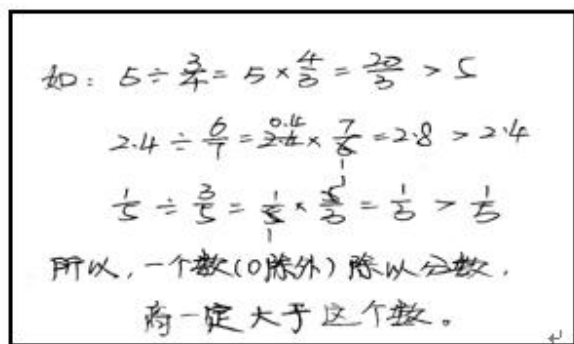 如：5÷3/4=5×4/3=20/3>5
2.4÷6/7=2.4×7/6=2.8>2.4
1/5÷3/5=1/5×5/3=1/3>1/5
所以，一个数(0除外)除以分数，
商一定大于这个数。